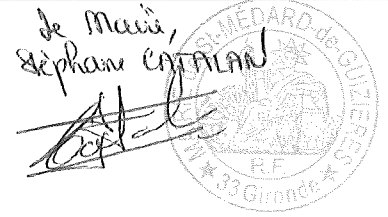 Le Maire,
Stéphane CATALAN
MAIRIE ST-MÉDARD-de-GUIZIÈRES
R.F.
★ 33 Gironde ★